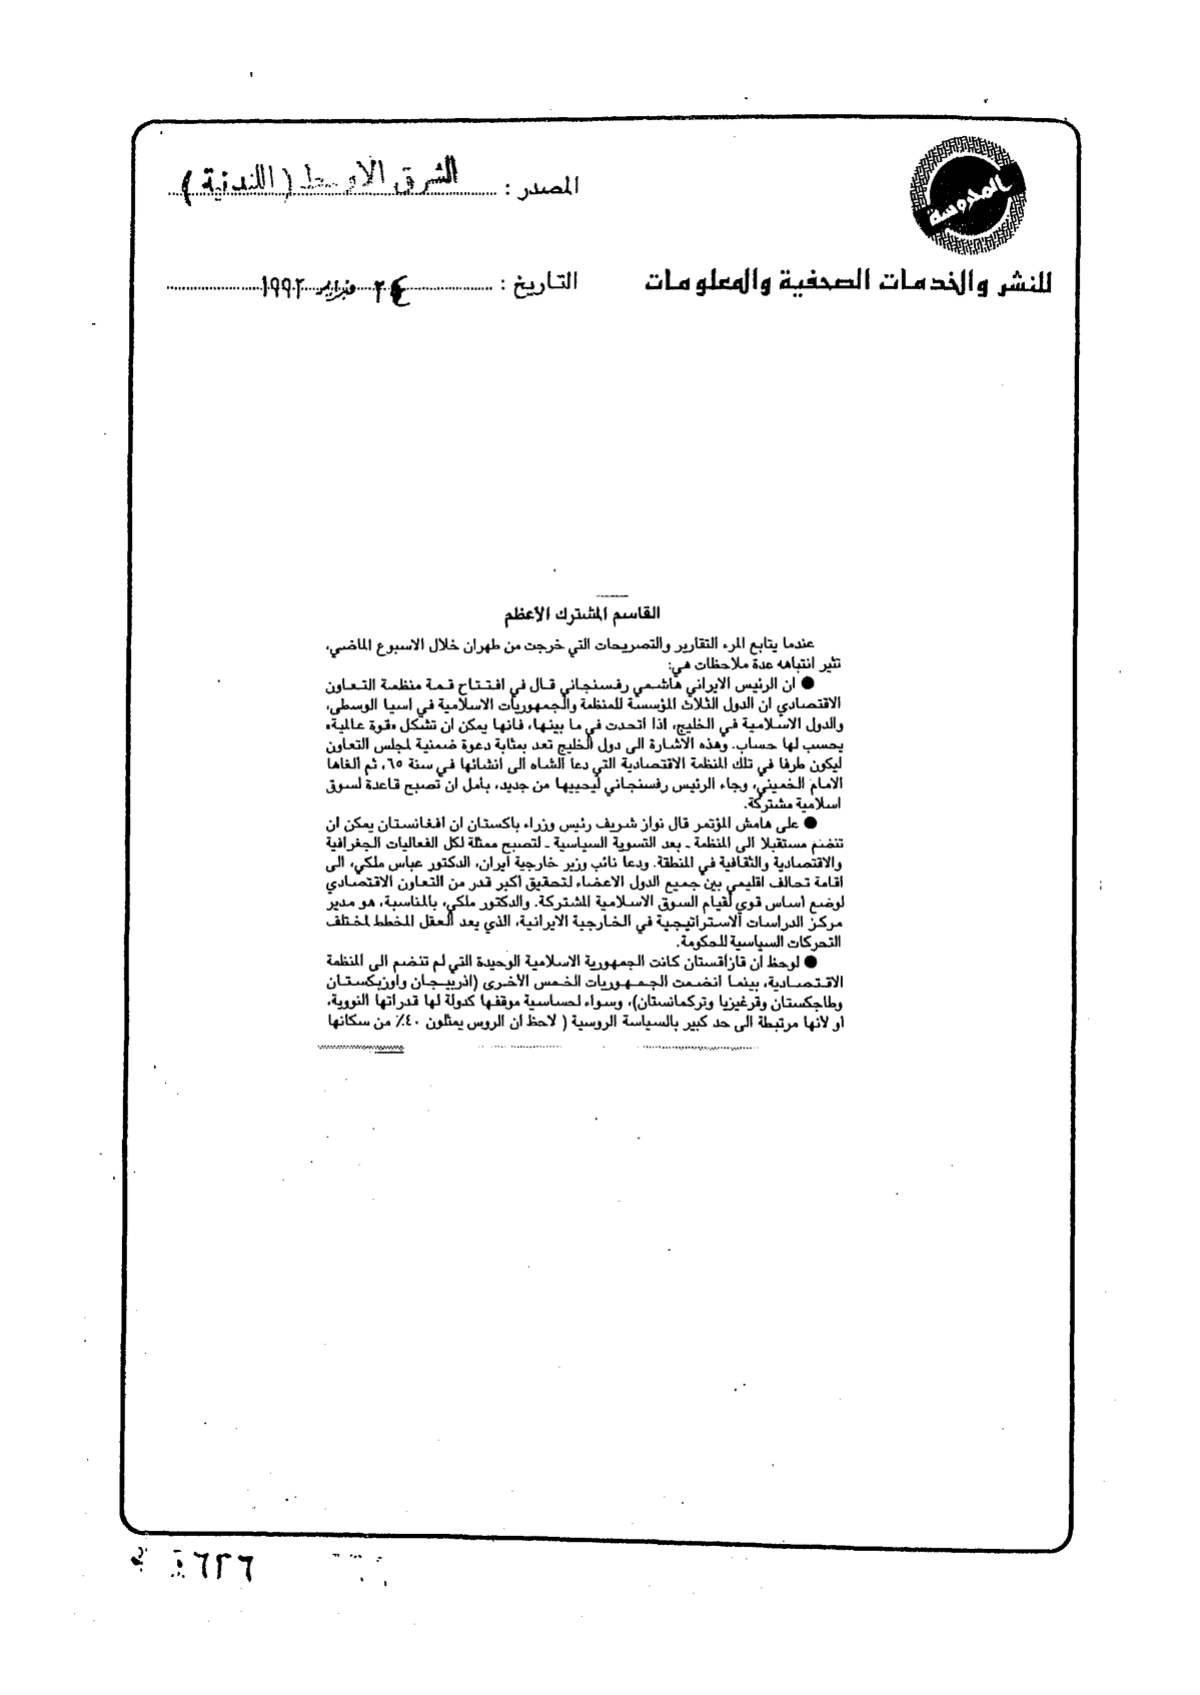 المحروسة
للنشر والخدمات الصحفية والمعلومات
المصدر : الشرق الاوسط (اللندنية)
التاريخ : ٢٤ فبراير ١٩٩٢
القاسم المشترك الأعظم
عندما يتابع المرء التقارير والتصريحات التي خرجت من طهران خلال الاسبوع الماضي،
تثير انتباهه عدة ملاحظات هي:
● ان الرئيس الايراني هاشمي رفسنجاني قال في افتتاح قمة منظمة التعاون
الاقتصادي ان الدول الثلاث المؤسسة للمنظمة والجمهوريات الاسلامية في اسيا الوسطى،
والدول الاسلامية في الخليج، اذا اتحدت في ما بينها، فانها يمكن ان تشكل «قوة عالمية»
يحسب لها حساب. وهذه الاشارة الى دول الخليج تعد بمثابة دعوة ضمنية لمجلس التعاون
ليكون طرفا في تلك المنظمة الاقتصادية التي دعا الشاه الى انشائها في سنة ٦٥، ثم الغاها
الامام الخميني، وجاء الرئيس رفسنجاني ليحييها من جديد، بأمل ان تصبح قاعدة لسوق
اسلامية مشتركة.
● على هامش المؤتمر قال نواز شريف رئيس وزراء باكستان ان افغانستان يمكن ان
تنضم مستقبلا الى المنظمة ـ بعد التسوية السياسية ـ لتصبح ممثلة لكل الفعاليات الجغرافية
والاقتصادية والثقافية في المنطقة. ودعا نائب وزير خارجية ايران، الدكتور عباس ملكي، الى
اقامة تحالف اقليمي بين جميع الدول الاعضاء لتحقيق اكبر قدر من التعاون الاقتصادي
لوضع اساس قوي لقيام السوق الاسلامية المشتركة. والدكتور ملكي، بالمناسبة، هو مدير
مركز الدراسات الاستراتيجية في الخارجية الايرانية، الذي يعد العقل المخطط لمختلف
التحركات السياسية للحكومة.
● لوحظ ان قازاقستان كانت الجمهورية الاسلامية الوحيدة التي لم تنضم الى المنظمة
الاقتصادية، بينما انضمت الجمهوريات الخمس الأخرى (اذربيجان واوزبكستان
وطاجكستان وقرغيزيا وتركمانستان)، وسواء لحساسية موقفها كدولة لها قدراتها النووية،
او لأنها مرتبطة الى حد كبير بالسياسة الروسية ( لاحظ ان الروس يمثلون ٤٠٪ من سكانها